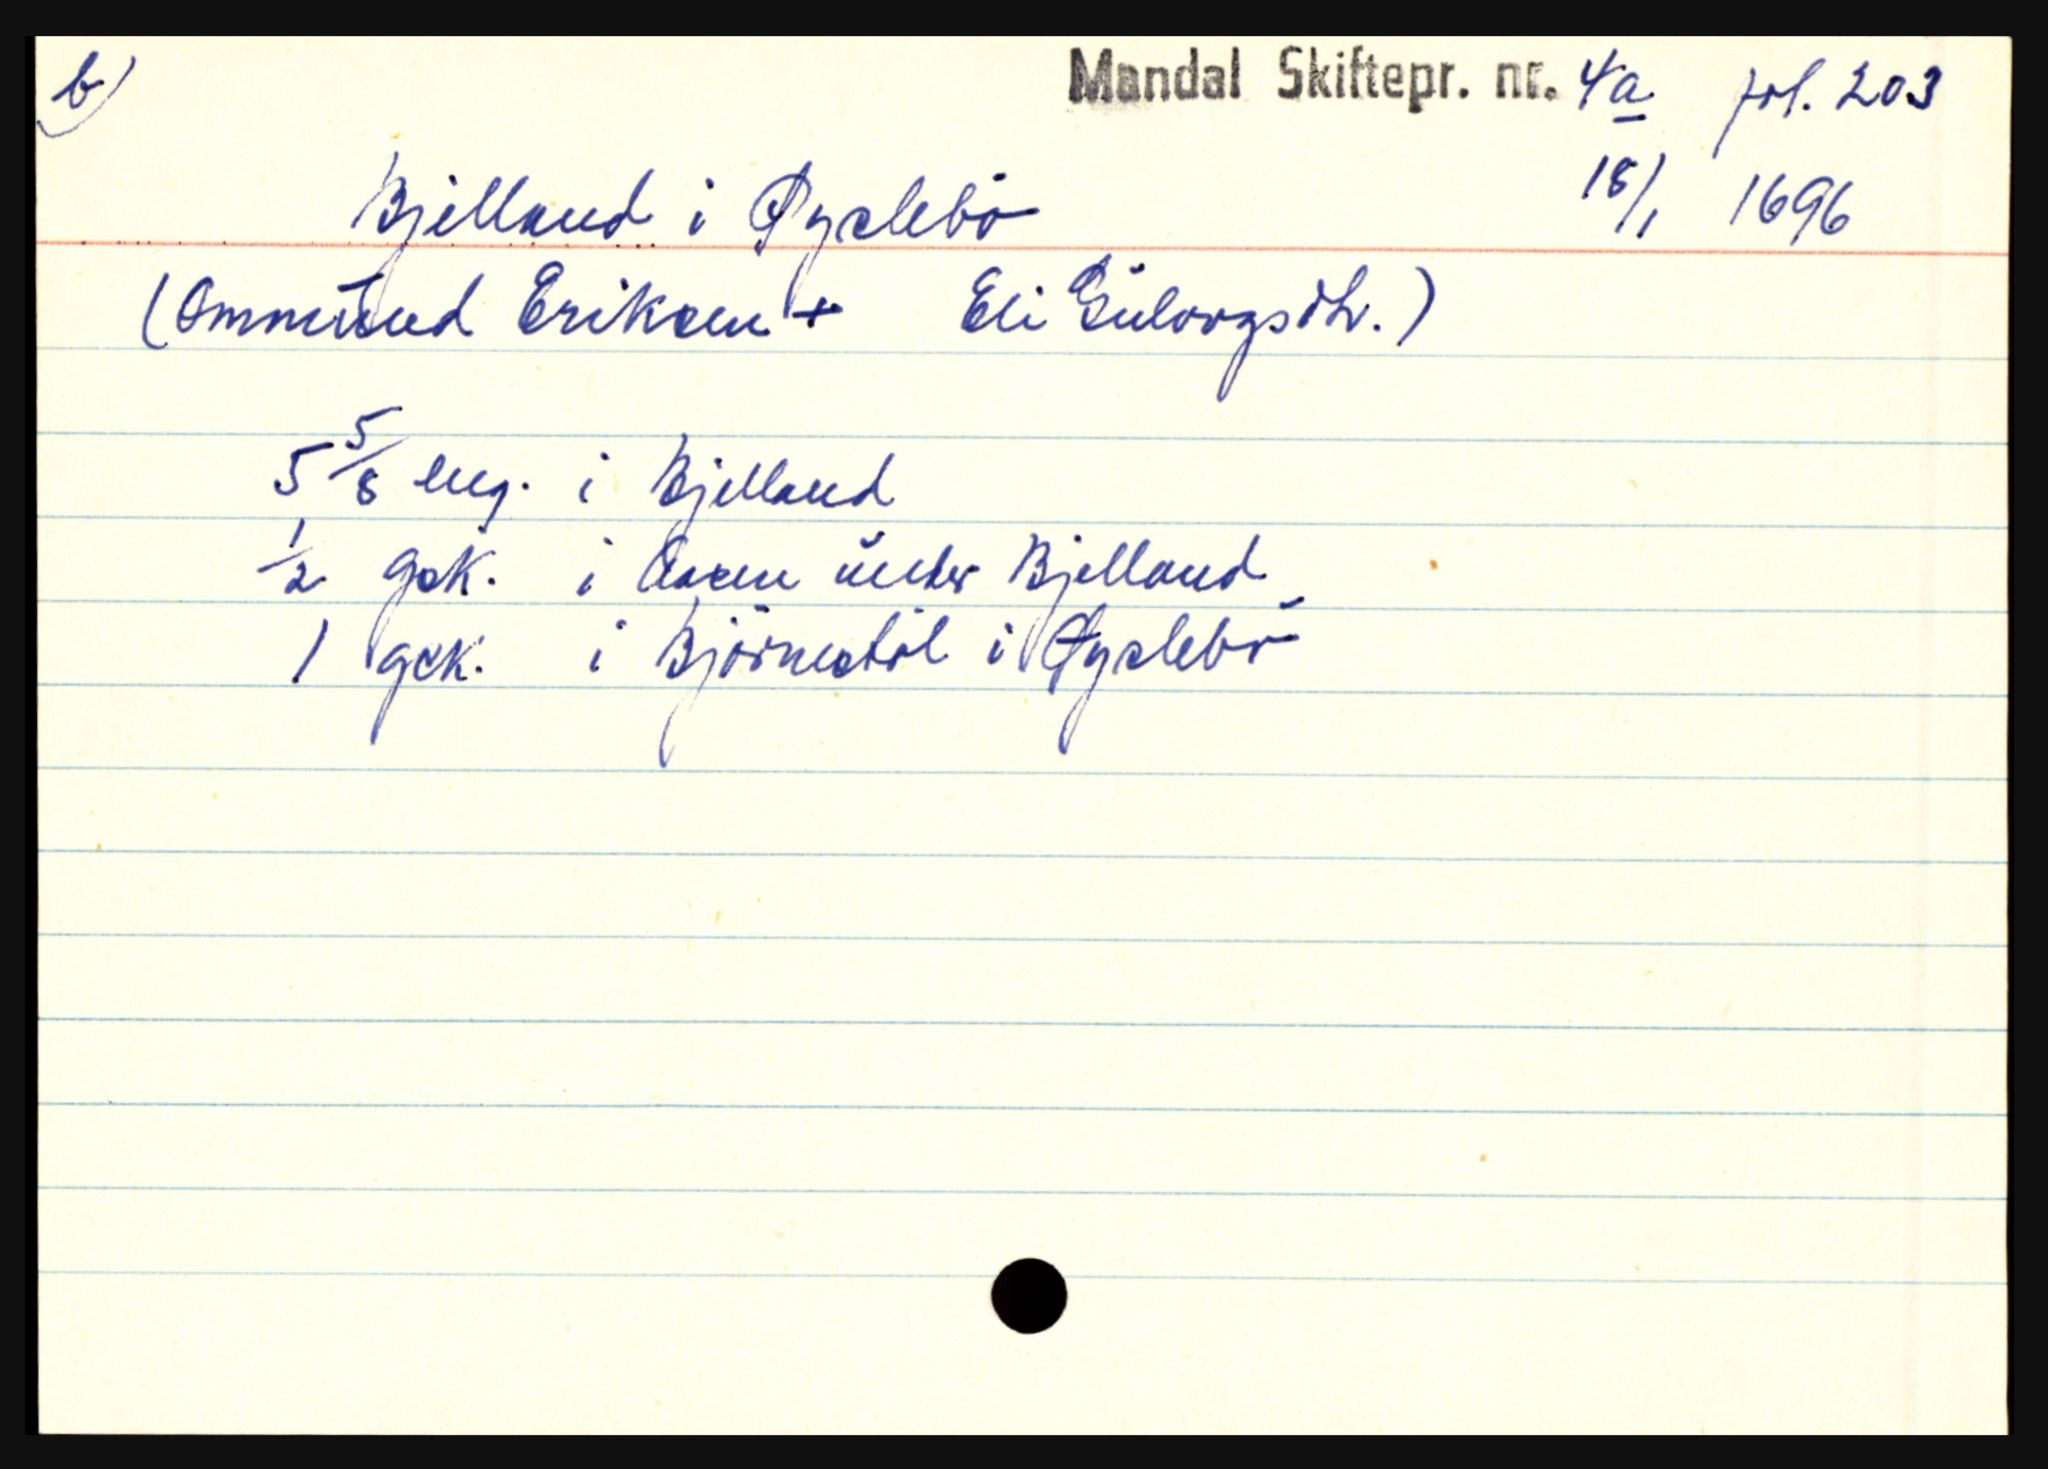 b)
Mandal Skiftepr. nr. 4a fol. 203
18/1 1696
Bjelland i Øyslebö
(Ommund Eriksen + Eli Gulovgsdtr.)
5 5/8 eng. i Bjelland
1/2 gsk. i Aasen under Bjelland
1 gsk. i Björnestöl i Øyslebö